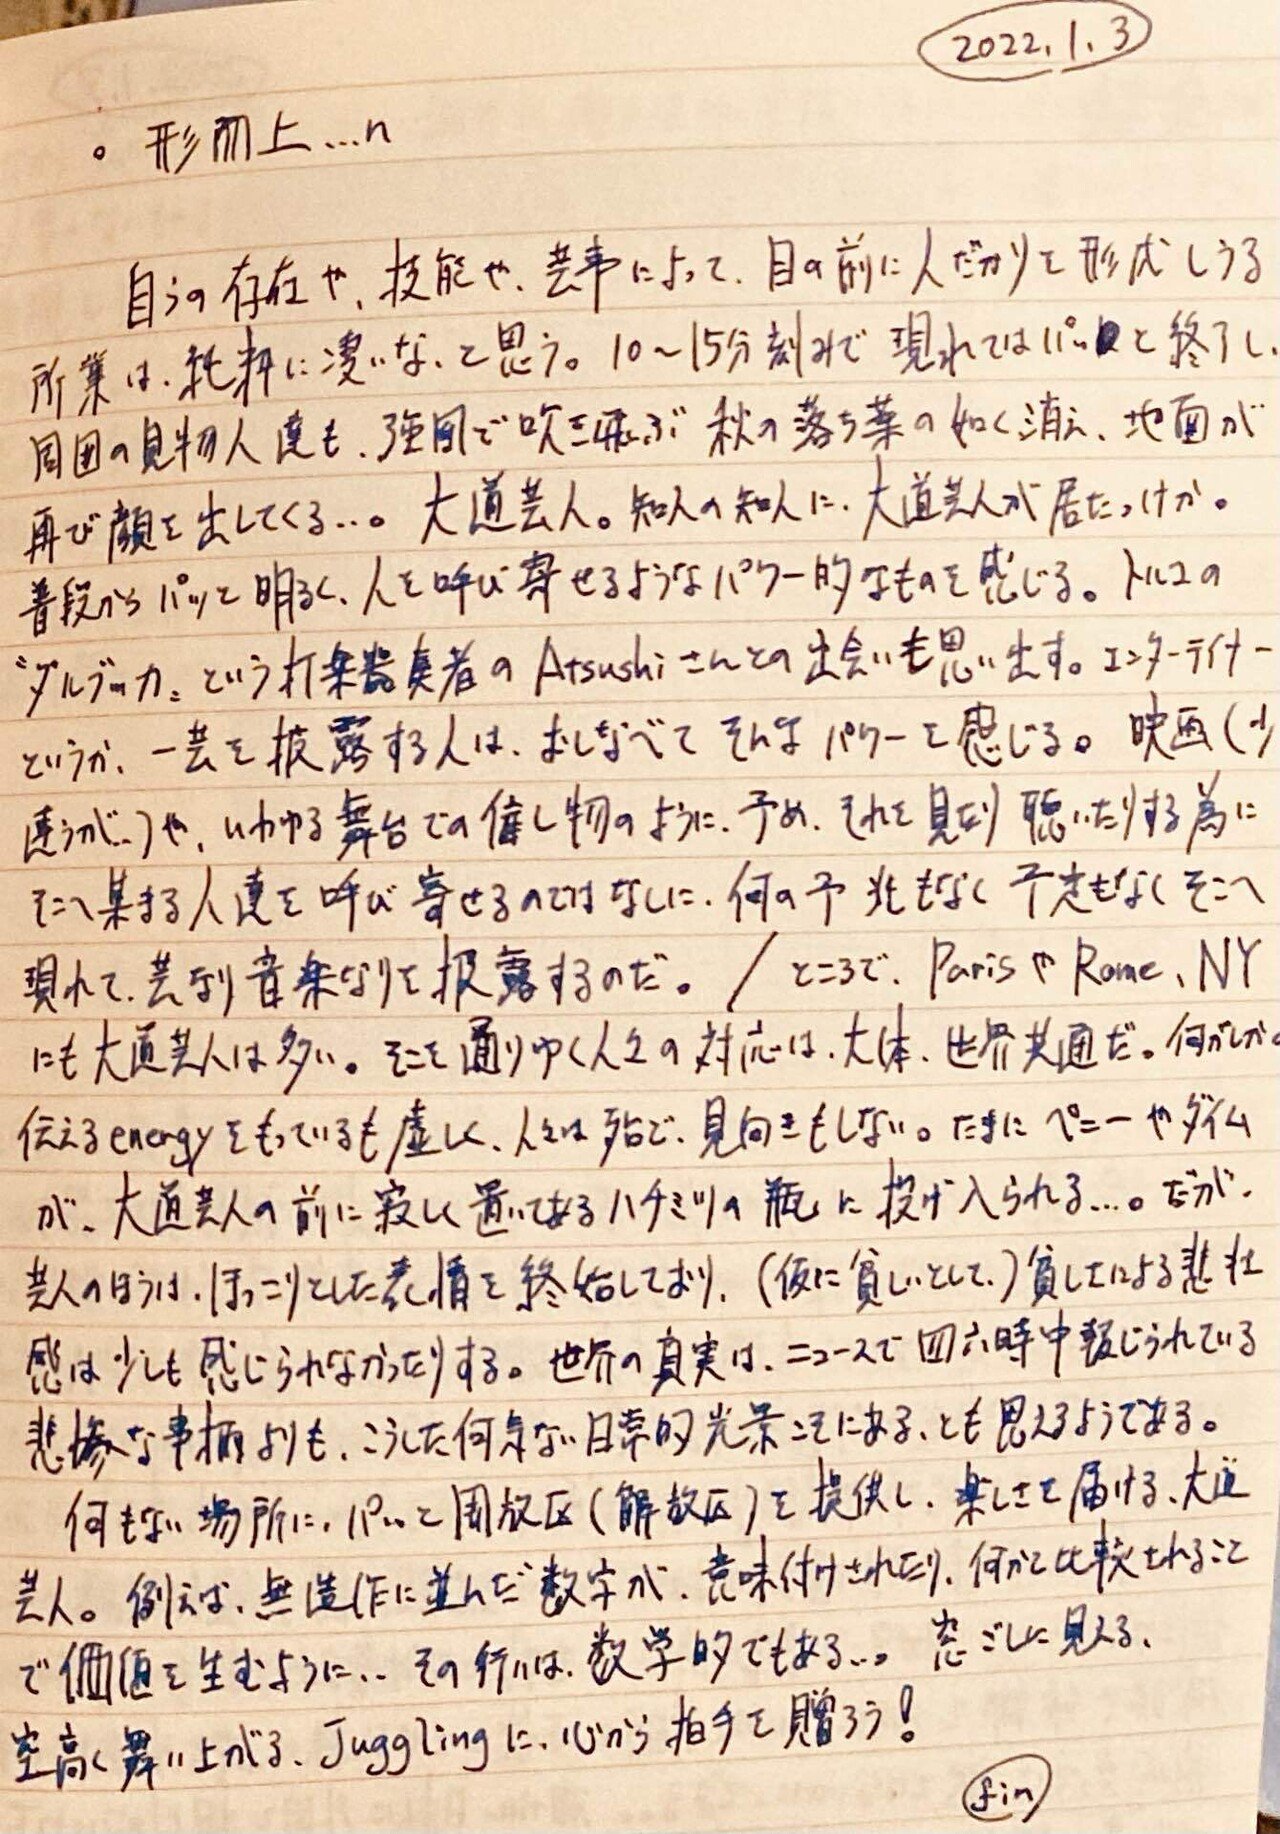 2022.1.3
。形而上...n
自らの存在や、技能や、芸事によって、目の前に人だかりを形成しうる
所業は、純粋に凄いな、と思う。10〜15分刻みで現れてはパッと終了し、
周囲の見物人達も、強風で吹き飛ぶ秋の落ち葉の如く消え、地面が
再び顔を出してくる...。大道芸人。知人の知人に、大道芸人が居たっけか。
普段からパッと明るく、人を呼び寄せるようなパワー的なものを感じる。トルコの
〝ダルブッカ〟という打楽器奏者のAtsushiさんとの出会いも思い出す。エンターテイナー
というか、一芸を披露する人は、おしなべてそんなパワーを感じる。映画(少
違うが..)や、いわゆる舞台での催し物のように、予め、それを見たり聴いたりする為に
そこへ集まる人達を呼び寄せるのではなしに、何の予兆もなく予定もなくそこへ
現れて、芸なり音楽なりを披露するのだ。/ところで、ParisやRome、NY
にも大道芸人は多い。そこを通りゆく人々の対応は、大体、世界共通だ。何がしか
伝えるenergyをもっているも虚しく、人々は殆で、見向きもしない。たまにペニーやダイム
が、大道芸人の前に寂しく置いてあるハチミツの瓶に投げ入られる...。だが、
芸人のほうは、ほっこりとした表情を終始しており、(仮に貧しいとして、)貧しさによる悲壮
感は少しも感じられなかったりする。世界の真実は、ニュースで四六時中報じられている
悲惨な事柄よりも、こうした何気ない日常的光景こそにある、とも思えるようである。
何もない場所に、パッと開放区(解放区)を提供し、楽しさを届ける、大道
芸人。例えば、無造作に並んだ数字が、意味付けされたり、何かと比較されること
で価値を生むように... その行いは、数学的でもある...。窓ごしに見える、
空高く舞い上がる、Jugglingに、心から拍手を贈ろう!
fin